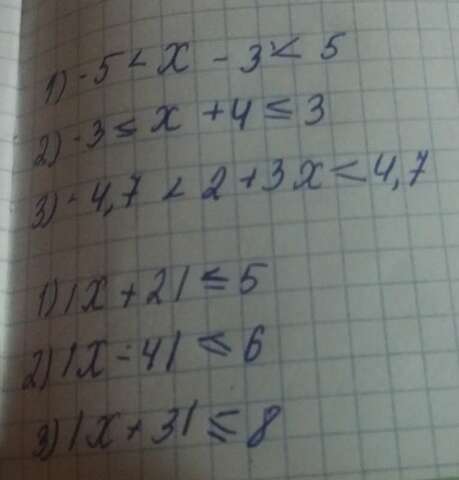 1) -5 < x - 3 < 5
2) -3 ≤ x + 4 ≤ 3
3) -4,7 < 2 + 3x < 4,7
1) |x + 2| ≤ 5
2) |x - 4| ≤ 6
3) |x + 3| ≤ 8